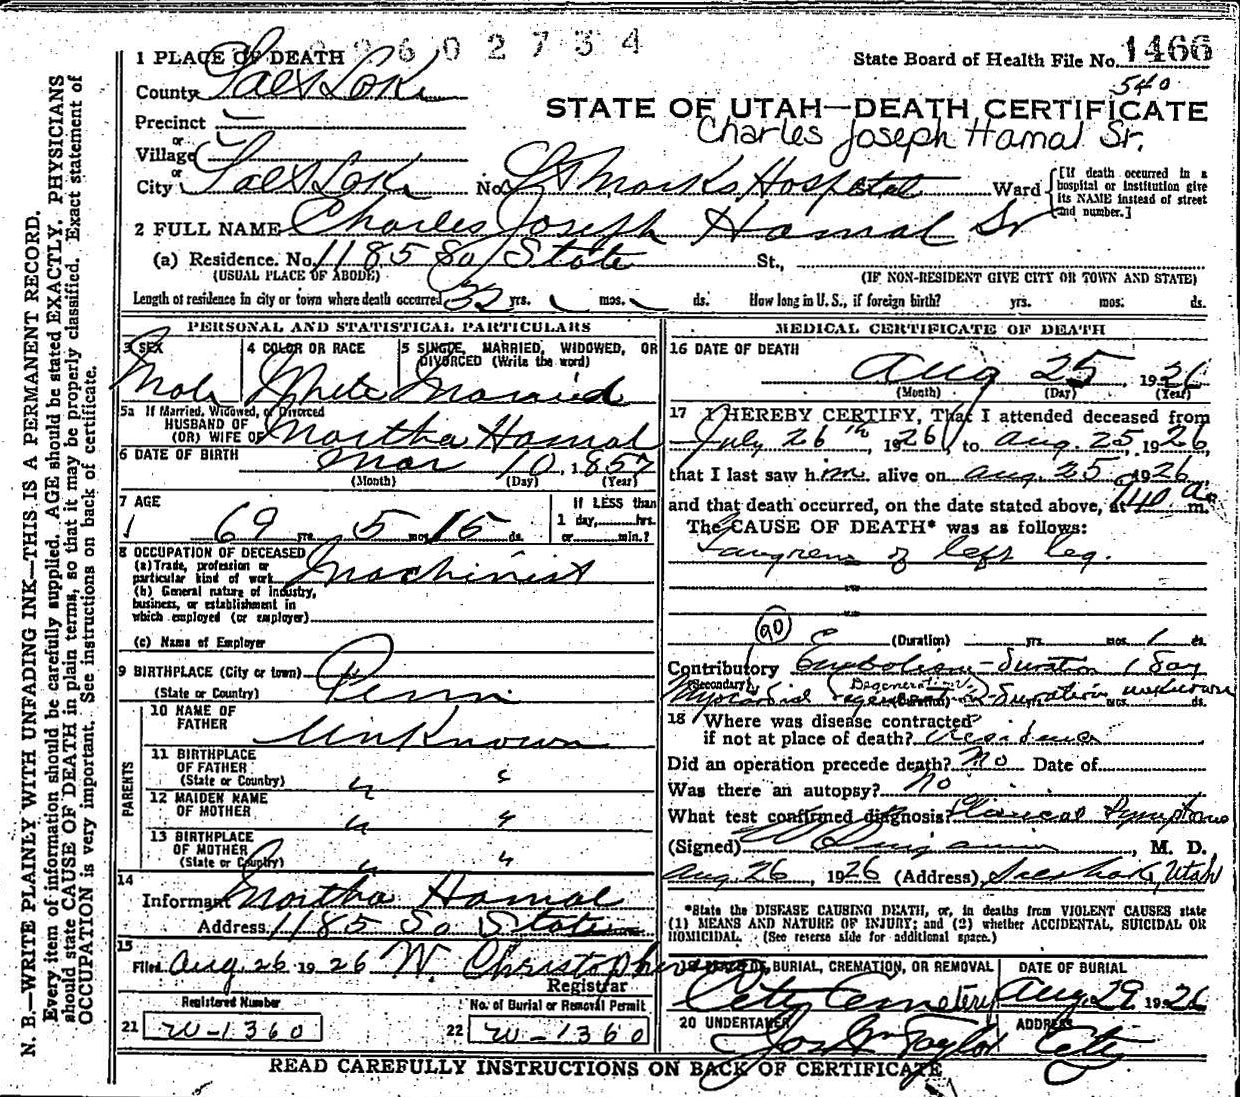 2602734
State Board of Health File No. 1466
540
1 PLACE OF DEATH
County Salt Lake
STATE OF UTAH—DEATH CERTIFICATE
Charles Joseph Hamal Sr.
Precinct
or
Village
or
City Salt Lake No. St Marks Hospital Ward
[If death occurred in a hospital or institution give its NAME instead of street and number.]
2 FULL NAME Charles Joseph Hamal Sr
(a) Residence. No. 1185 So State St.,
(USUAL PLACE OF ABODE) (IF NON-RESIDENT GIVE CITY OR TOWN AND STATE)
Length of residence in city or town where death occurred 32 yrs. mos. ds. How long in U. S., if foreign birth? yrs. mos. ds.
PERSONAL AND STATISTICAL PARTICULARS
3 SEX 4 COLOR OR RACE 5 SINGLE, MARRIED, WIDOWED, OR DIVORCED (Write the word)
Male White Married
5a If Married, Widowed, or Divorced
HUSBAND OF
(OR) WIFE OF Martha Hamal
6 DATE OF BIRTH Mar 10, 1857
(Month) (Day) (Year)
7 AGE If LESS than
69 yrs. 5 mos. 15 ds. 1 day, hrs.
or min.?
8 OCCUPATION OF DECEASED
(a) Trade, profession or
particular kind of work Machinist
(b) General nature of industry,
business, or establishment in
which employed (or employer)
(c) Name of Employer
9 BIRTHPLACE (City or town)
(State or Country) Penn
PARENTS
10 NAME OF
FATHER Unknown
11 BIRTHPLACE
OF FATHER
(State or Country) " "
12 MAIDEN NAME
OF MOTHER " "
13 BIRTHPLACE
OF MOTHER
(State or Country) " "
14
Informant Martha Hamal
Address 1185 So State
15
Filed Aug. 26 1926 W. Christopherson
Registrar
Registered Number No. of Burial or Removal Permit
21 W-1360 22 W-1360
MEDICAL CERTIFICATE OF DEATH
16 DATE OF DEATH
Aug 25, 1926
(Month) (Day) (Year)
17 I HEREBY CERTIFY, That I attended deceased from
July 26th, 1926, to Aug. 25, 1926,
that I last saw him alive on Aug. 25 1926
and that death occurred, on the date stated above, at 4:40 a. m.
The CAUSE OF DEATH* was as follows:
Gangrene of left leg.
90
(Duration) yrs. mos. 1 ds.
Contributory Embolism - Duration 1 Day
(Secondary) Degeneration
Myocardial - Duration unknown
(Duration) yrs. mos. ds.
18 Where was disease contracted
if not at place of death? Residence
Did an operation precede death? No Date of
Was there an autopsy? No
What test confirmed diagnosis? Clinical Symptoms
(Signed) , M. D.
Aug. 26, 1926 (Address) Salt Lake, Utah
*State the DISEASE CAUSING DEATH, or, in deaths from VIOLENT CAUSES state
(1) MEANS AND NATURE OF INJURY; and (2) whether ACCIDENTAL, SUICIDAL OR
HOMICIDAL. (See reverse side for additional space.)
19 PLACE OF BURIAL, CREMATION, OR REMOVAL DATE OF BURIAL
City Cemetery Aug. 29 1926
20 UNDERTAKER ADDRESS
Jos Wm Taylor City
READ CAREFULLY INSTRUCTIONS ON BACK OF CERTIFICATE
N. B.—WRITE PLAINLY WITH UNFADING INK—THIS IS A PERMANENT RECORD.
Every item of information should be carefully supplied. AGE should be stated EXACTLY. PHYSICIANS
should state CAUSE OF DEATH in plain terms, so that it may be properly classified. Exact statement of
OCCUPATION is very important. See instructions on back of certificate.